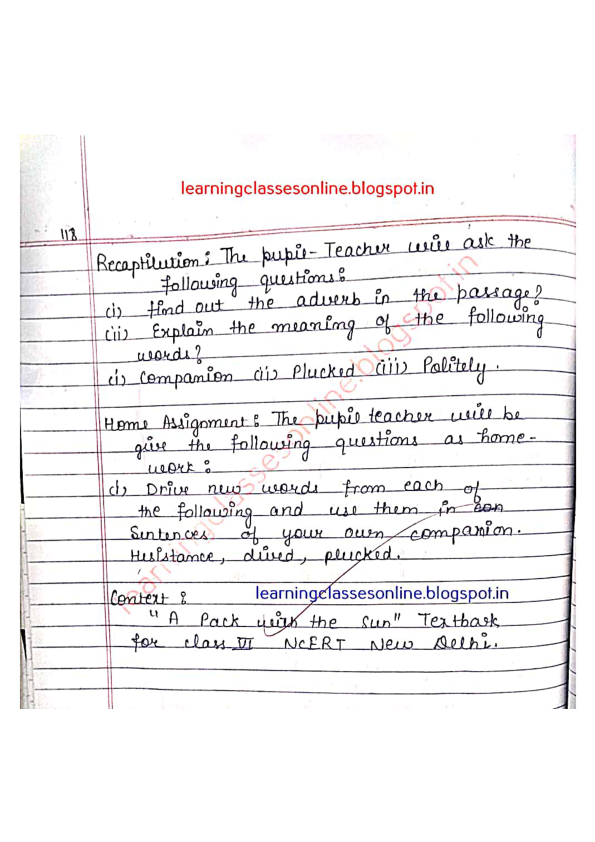 learningclassesonline.blogspot.in
118
Recaptilution: The pupil-Teacher will ask the
following questions:
(i) find out the adverb in the passage?
(ii) Explain the meaning of the following
words?
(i) Companion (ii) Plucked (iii) Politely.
Home Assignment: The pupil teacher will be
give the following questions as home-
work:
(i) Drive new words from each of
the following and use them in
Sintences of your own companion.
Hesistance, dived, plucked.
Context:
learningclassesonline.blogspot.in
"A Pack with the Sun" Textbook
for class VI NCERT New Delhi.
learningclassesonline.blogspot.in